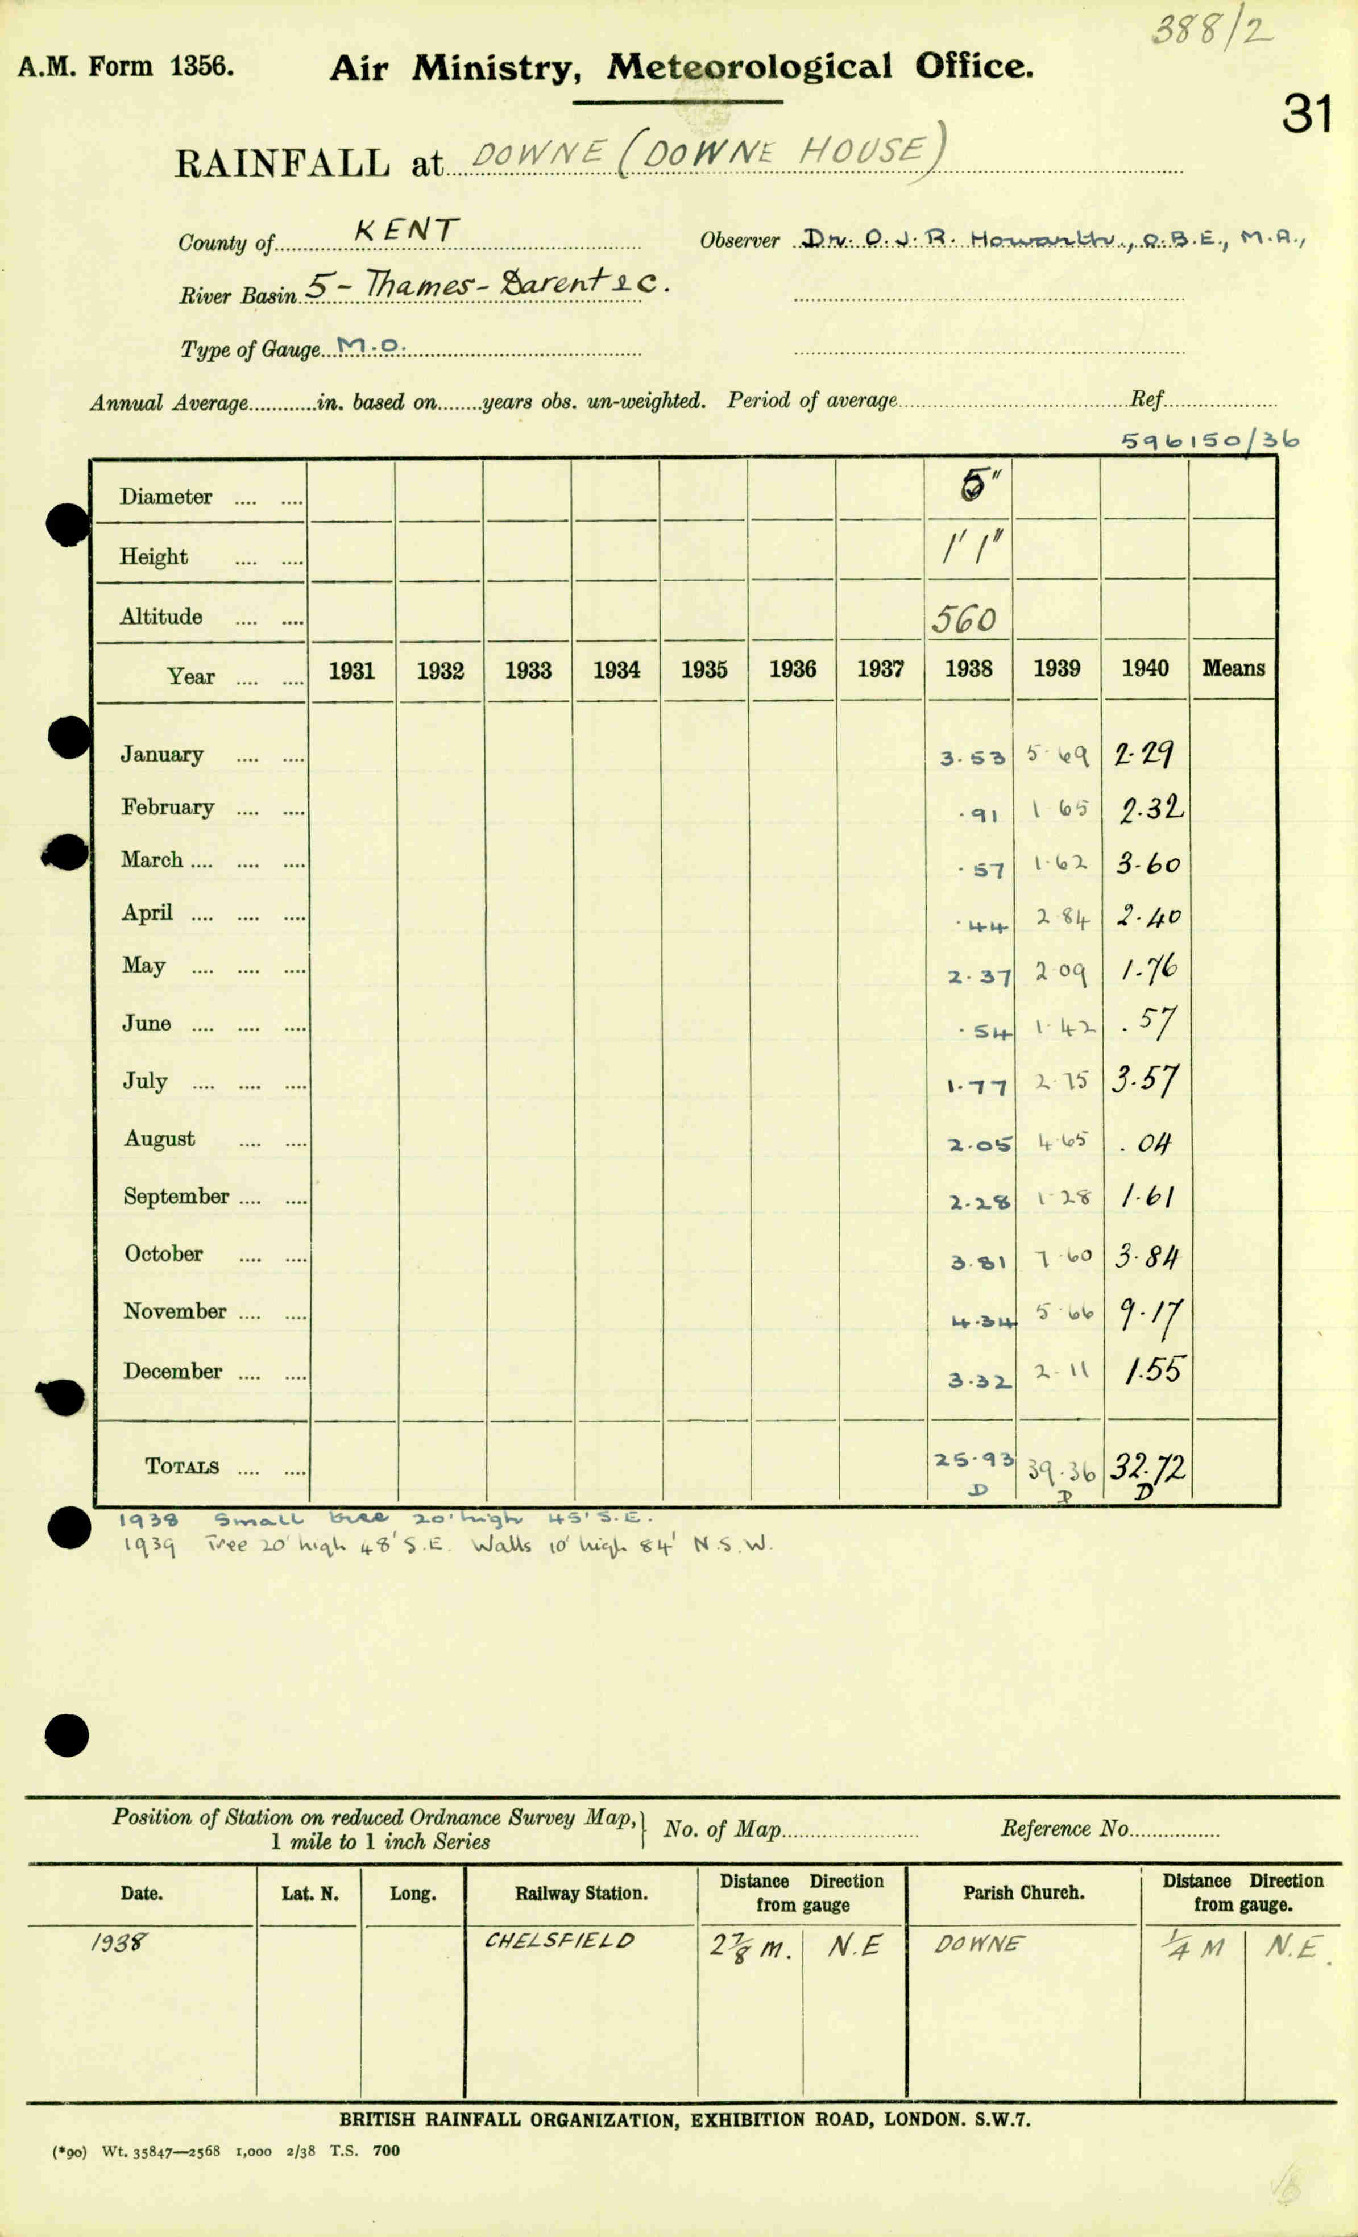 388/2
A.M. Form 1356. Air Ministry, Meteorological Office.
31
RAINFALL at DOWNE (DOWNE HOUSE)
County of KENT Observer Dr. O.J.R. Howarth, O.B.E., M.A.,
River Basin 5 - Thames - Darent &c.
Type of Gauge M.O.
Annual Average............in. based on........years obs. un-weighted. Period of average........ Ref........
596150/36
Diameter .... .... 5"
Height .... .... 1' 1"
Altitude .... .... 560
Year .... .... 1931 1932 1933 1934 1935 1936 1937 1938 1939 1940 Means
January .... .... 3.53 5.69 2.29
February .... .... .91 1.65 2.32
March .... .... .... .57 1.62 3.60
April .... .... .... .44 2.84 2.40
May .... .... .... 2.37 2.09 1.76
June .... .... .... .54 1.42 .57
July .... .... .... 1.77 2.75 3.57
August .... .... 2.05 4.65 .04
September .... .... 2.28 1.28 1.61
October .... .... 3.81 7.60 3.84
November .... .... 4.34 5.66 9.17
December .... .... 3.32 2.11 1.55
TOTALS .... .... 25.93 39.36 32.72
D D D
1938 Small tree 20' high 45' S.E.
1939 Tree 20' high 48' S.E. Walls 10' high 84' N.S.W.
Position of Station on reduced Ordnance Survey Map, } No. of Map........ Reference No........
1 mile to 1 inch Series
Date. Lat. N. Long. Railway Station. Distance Direction from gauge Parish Church. Distance Direction from gauge.
1938 CHELSFIELD 2 7/8 m. N.E DOWNE 1/4 M N.E.
BRITISH RAINFALL ORGANIZATION, EXHIBITION ROAD, LONDON. S.W.7.
(*90) Wt. 35847—2568 1,000 2/38 T.S. 700